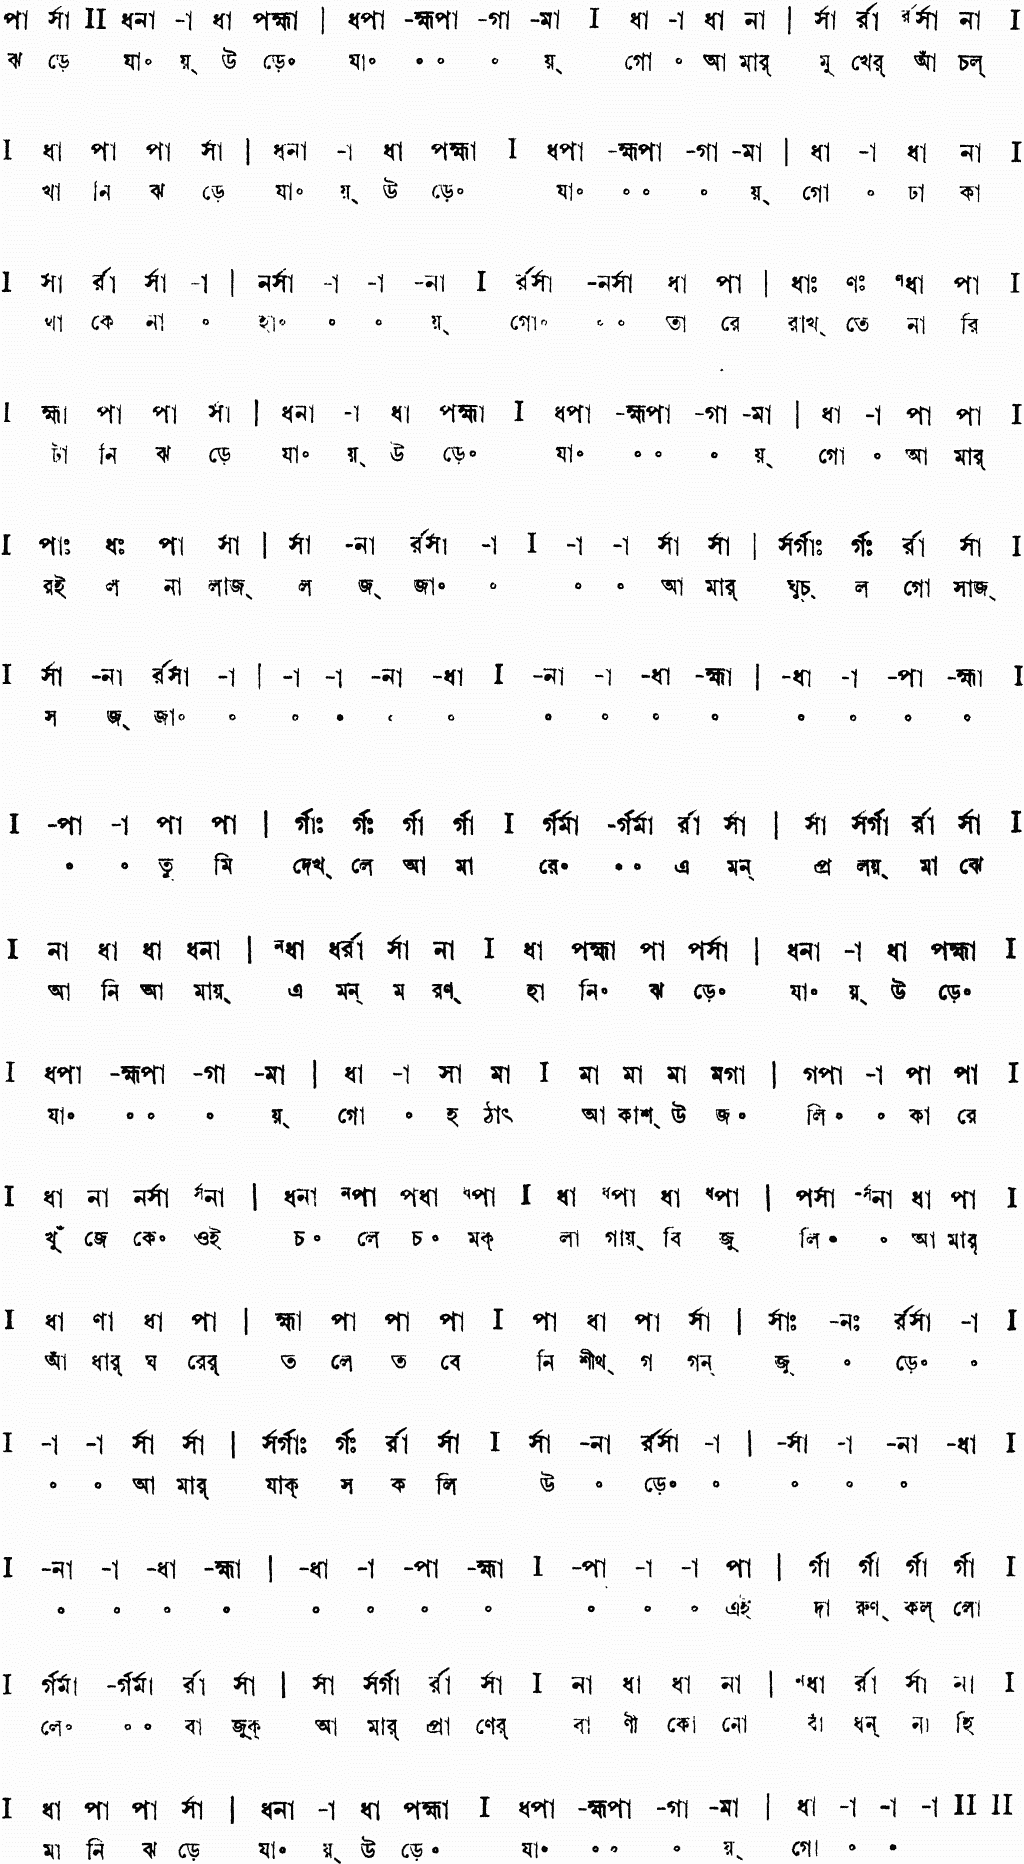 পা র্সা II ধনা -া ধা পহ্মা | ধপা -হ্মপা -গা -মা I ধা -া ধা না | র্সা র্রা র্রর্সা না I
ঝ ড়ে যা॰ য়্ উ ড়ে॰ যা॰ ॰ ॰ ॰ য়্ গো ॰ আ মার্ মু খের্ আঁ চল্
I ধা পা পা র্সা | ধনা -া ধা পহ্মা I ধপা -হ্মপা -গা -মা | ধা -া ধা না I
খা নি ঝ ড়ে যা॰ য়্ উ ড়ে॰ যা॰ ॰ ॰ ॰ য়্ গো ॰ ঢা কা
I র্সা র্রা র্সা -া | নর্সা -া -া -না I র্রর্সা -নর্সা ধা পা | ধাঃ ণঃ ণধা পা I
থা কে না ॰ হা॰ ॰ ॰ য়্ গো॰ ॰ ॰ তা রে রাখ্ তে না রি
I হ্মা পা পা র্সা | ধনা -া ধা পহ্মা I ধপা -হ্মপা -গা -মা | ধা -া পা পা I
টা নি ঝ ড়ে যা॰ য়্ উ ড়ে॰ যা॰ ॰ ॰ ॰ য়্ গো ॰ আ মার্
I পাঃ ধঃ পা র্সা | র্সা -না র্রর্সা -া I -া -া র্সা র্সা | র্সর্গাঃ র্গঃ র্রা র্সা I
রই ল না লাজ্ ল জ্ জা॰ ॰ ॰ ॰ আ মার্ ঘুচ্ ল গো সাজ্
I র্সা -না র্রর্সা -া | -া -া -না -ধা I -না -া -ধা -হ্মা | -ধা -া -পা -হ্মা I
স জ্ জা॰ ॰ ॰ ॰ ॰ ॰ ॰ ॰ ॰ ॰ ॰ ॰ ॰ ॰
I -পা -া পা পা | র্গাঃ র্গঃ র্গা র্গা I র্গর্মা -র্গর্মা র্রা র্সা | র্সা র্সর্গা র্রা র্সা I
॰ ॰ তু মি দেখ্ লে আ মা রে॰ ॰ ॰ এ মন্ প্র লয়্ মা ঝে
I না ধা ধা ধনা | নধা ধর্রা র্সা না I ধা পহ্মা পা পর্সা | ধনা -া ধা পহ্মা I
আ নি আ মায়্ এ মন্ ম রণ্ হা নি॰ ঝ ড়ে॰ যা॰ য়্ উ ড়ে॰
I ধপা -হ্মপা -গা -মা | ধা -া সা মা I মা মা মা মগা | গপা -া পা পা I
যা॰ ॰ ॰ ॰ য়্ গো ॰ হ ঠাৎ আ কাশ্ উ জ॰ লি॰ ॰ কা রে
I ধা না নর্সা র্সনা | ধনা নপা পধা ধপা I ধা ধপা ধা ধপা | পর্সা -র্সনা ধা পা I
খুঁ জে কে॰ ওই চ॰ লে চ॰ মক্ লা গায়্ বি জু লি॰ ॰ আ মার্
I ধা ণা ধা পা | হ্মা পা পা পা I পা ধা পা র্সা | র্সাঃ -নঃ র্রর্সা -া I
আঁ ধার্ ঘ রের্ ত লে ত বে নি শীথ্ গ গন্ জু ॰ ড়ে॰ ॰
I -া -া র্সা র্সা | র্সর্গাঃ র্গঃ র্রা র্সা I র্সা -না র্রর্সা -া | -র্সা -া -না -ধা I
॰ ॰ আ মার্ যাক্ স ক লি উ ॰ ড়ে॰ ॰ ॰ ॰ ॰
I -না -া -ধা -হ্মা | -ধা -া -পা -হ্মা I -পা -া -া পা | র্গা র্গা র্গা র্গা I
॰ ॰ ॰ ॰ ॰ ॰ ॰ ॰ ॰ ॰ ॰ এই দা রুণ্ কল্ লো
I র্গর্মা -র্গর্মা র্রা র্সা | র্সা র্সর্গা র্রা র্সা I না ধা ধা না | ণধা র্রা র্সা না I
লে॰ ॰ ॰ বা জুক্ আ মার্ প্রা ণের্ বা ণী কো নো বাঁ ধন্ না হি
I ধা পা পা র্সা | ধনা -া ধা পহ্মা I ধপা -হ্মপা -গা -মা | ধা -া -া -া II II
মা নি ঝ ড়ে যা॰ য়্ উ ড়ে॰ যা॰ ॰ ॰ ॰ য়্ গো ॰ ॰